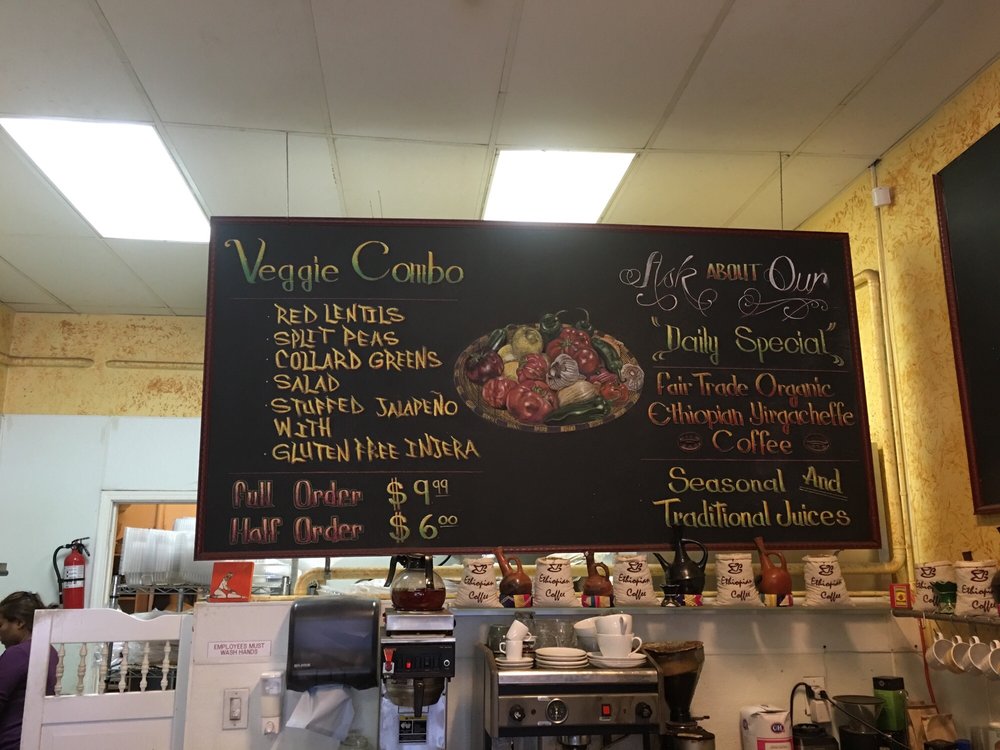 Veggie Combo
· RED LENTILS
· SPLIT PEAS
· COLLARD GREENS
· SALAD
· STUFFED JALAPEÑO
WITH
· GLUTEN FREE INJERA
Full Order $9.99
Half Order $6.00
Ask ABOUT Our
"Daily Special"
Fair Trade Organic
Ethiopian Yirgacheffe
Coffee
Seasonal And
Traditional Juices
Ethiopian
Coffee
Ethiopian
Coffee
Ethiopian
Coffee
Ethiopian
Coffee
Ethiopian
Coffee
Ethiopian
Coffee
EMPLOYEES MUST
WASH HANDS
C&H